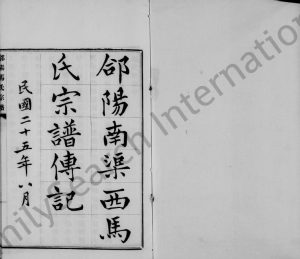 郃陽南渠西馬
氏宗譜傳記
民國二十五年八月
Family Search International